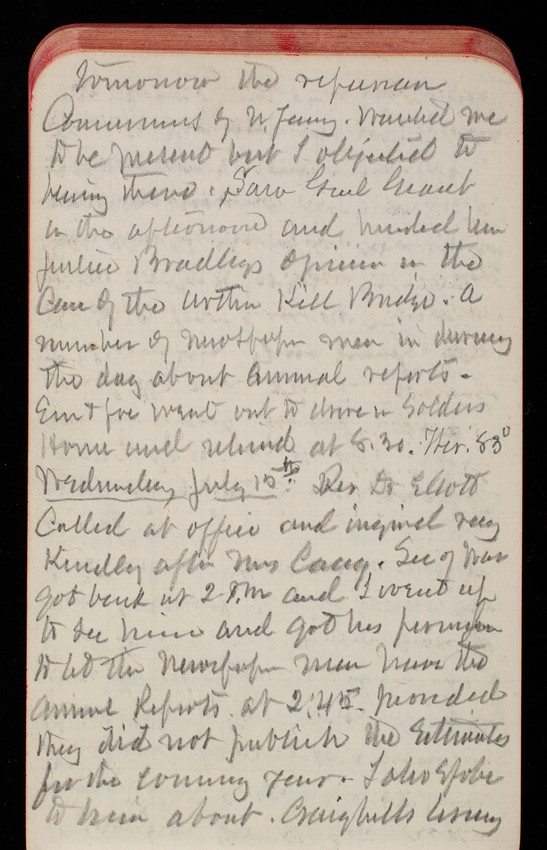 tomorrow the
Commrs of N. Jersey. Wanted me
to be present but I objected to
being there. Saw Genl
in the afternoon and handed him
Justice Bradleys Opinion in the
Case of the Arthur Kill Bridge. A
number of newspaper men in during
the day about Annual reports -
Em & Joe went out to drive Soldiers
Home and returned at 8.30. Ther. 83°
Wednesday July 15th. Rev Dr Elliott
Called at office and inquired very
Kindly after Mrs Casey. Sec of War
got back at 2 P.M and I went up
to see him and got his permission
to let the Newspaper men have the
Annual Reports at 2.45. provided
they did not publish the Estimates
for the coming year. I also spoke
to him about Craighills